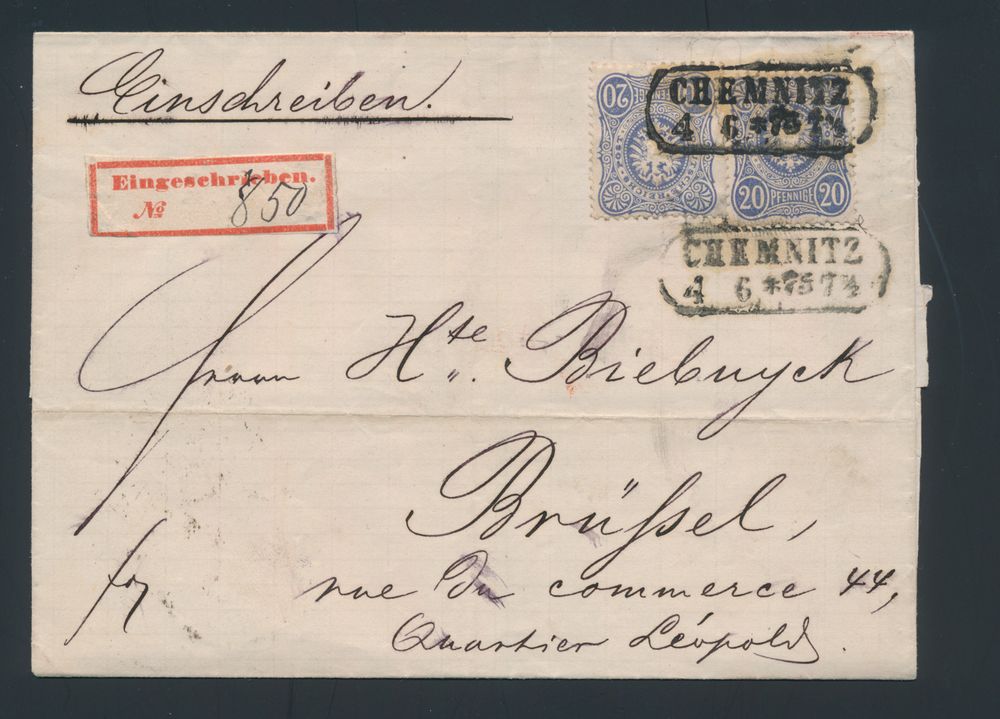 Einschreiben.
Eingeschrieben.
№ 850
20
CHEMNITZ
4 6 *75 7½
20 PFENNIGE 20
CHEMNITZ
4 6 *75 7½
Herrn Hte. Biebuyck
Brüssel,
rue du commerce 44,
Quartier Léopold.